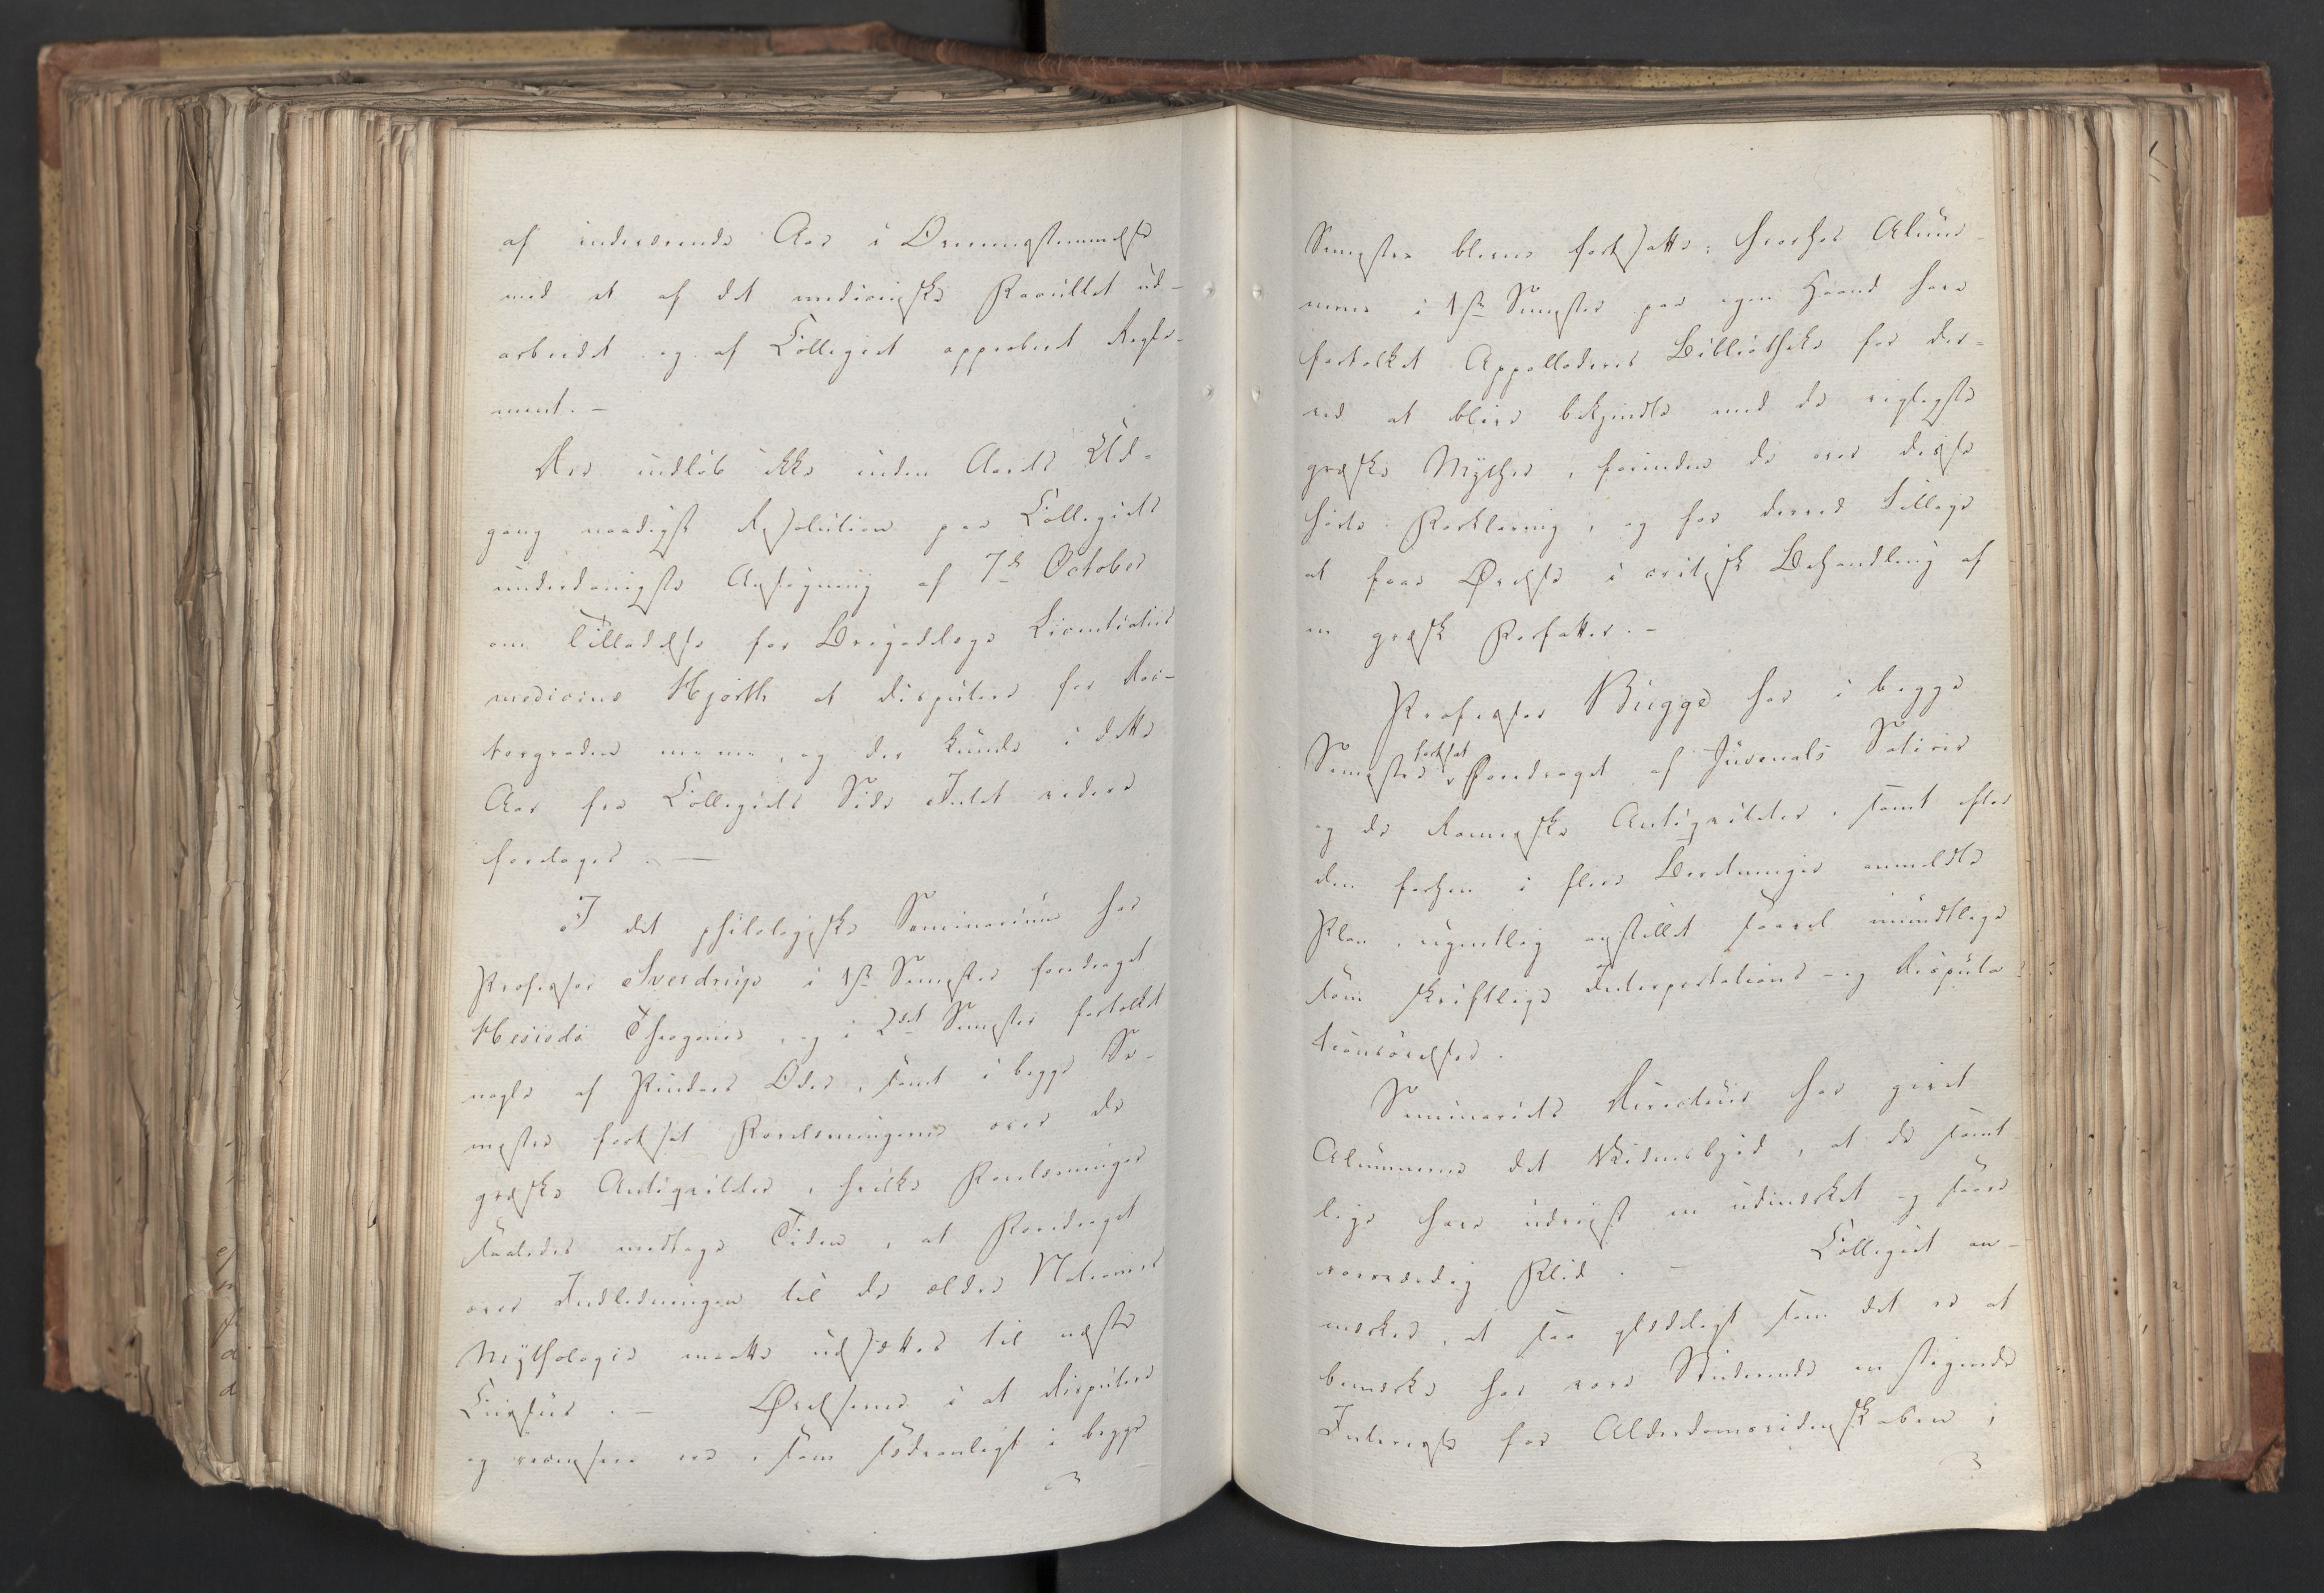 af indeværende Aar i Overensstemmelse
med et af det medicinske Facultet ud-
arbeidet og af Collegiet approberet Regle-
ment. -
Der indløb ikke inden Aarets Ud-
gang naadigst Resolution paa Collegiets
underdanigste Ansøgning af 7de October
om Tilladelse for Brigadelæge Licentiatus
medicinæ Hjorth at disputere for Doc-
torgraden m. m., og der kunde i dette
Aar fra Collegiets Side Intet videre
foretages. -
I det philologiske Seminarium har
Professor Sverdrup i 1ste Semester foredraget
Hesiods Theogonie, og i 2det Semester fortolket
nogle af Pindars Oder, samt i begge Se-
mestre fortsat Forelæsningerne over de
græske Antiqviteter, hvilke Forelæsninger
saaledes medtoge Tiden, at Foredraget
over Indledningen til de ældre Nationers
Mythologie maatte udsættes til næste
Cursus. - Øvelserne i at disputere
og recensere ere, som sædvanligt i begge
Semestre blevne fortsatte; hvorhos Alum-
nerne i 1ste Semester paa egen Haand have
fortolket Appollodors Bibliotheke for der-
ved at blive bekjendte med de vigtigste
græske Myther, forinden de over disse
hørte Forklaring, og for derved tillige
at faae Øvelse i critisk Behandling af
en græsk Forfatter. -
Professor Bugge har i begge
Semestre fortsat Foredraget af Juvenals Satirer
og de Romerske Antiqviteter, samt efter
den forhen i flere Beretninger anmeldte
Plan, ugentlig anstillet saavel mundtlige
som skriftlige Interpretations- og Disputa-
tionsøvelser.
Seminariets Directeur har givet
Alumnerne det Vidnesbyrd, at de samt-
lige have udviist en udmærket og saare
roesværdig Flid. - Collegiet an-
mærker, at saa glædeligt som det er at
bemærke hos vore Studerende en stigende
Interesse for Alderdomsvidenskaben i